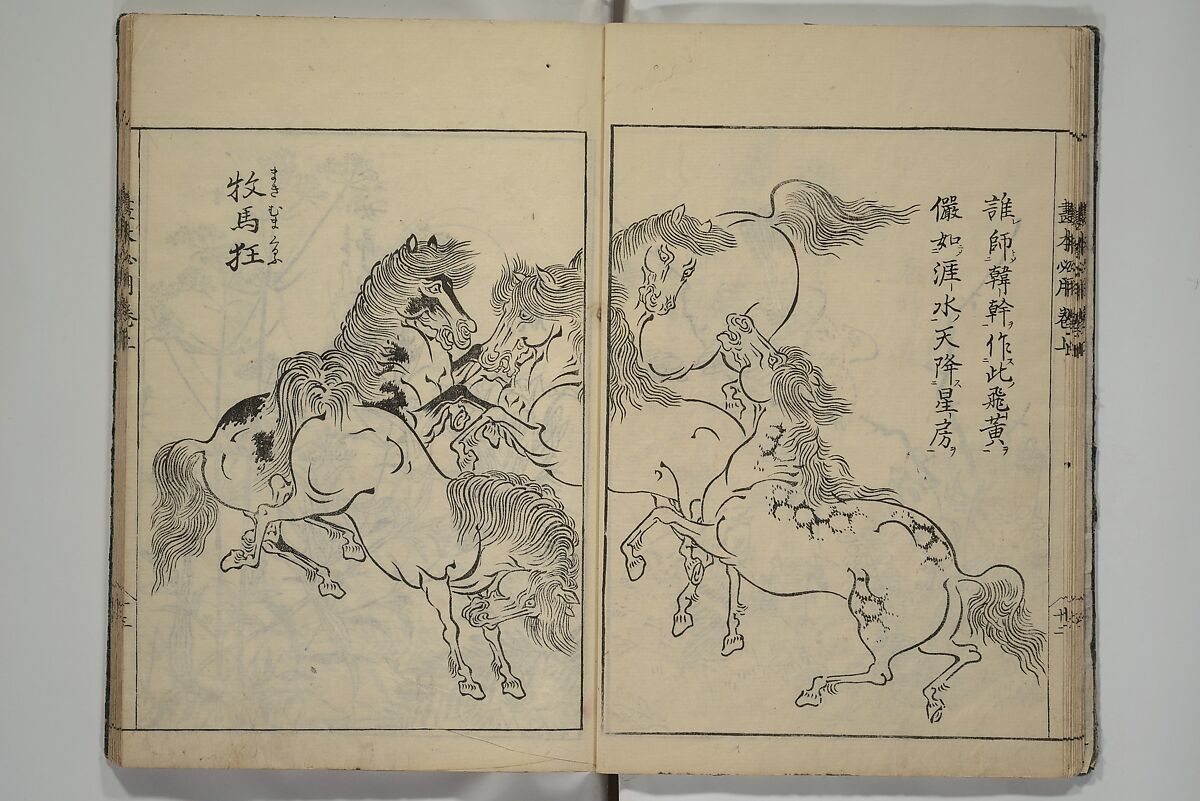 誰師韓幹作此飛黄
儼如涯水天降星房
牧馬狂
まきむまくるふ
畫本必用卷上
廿二